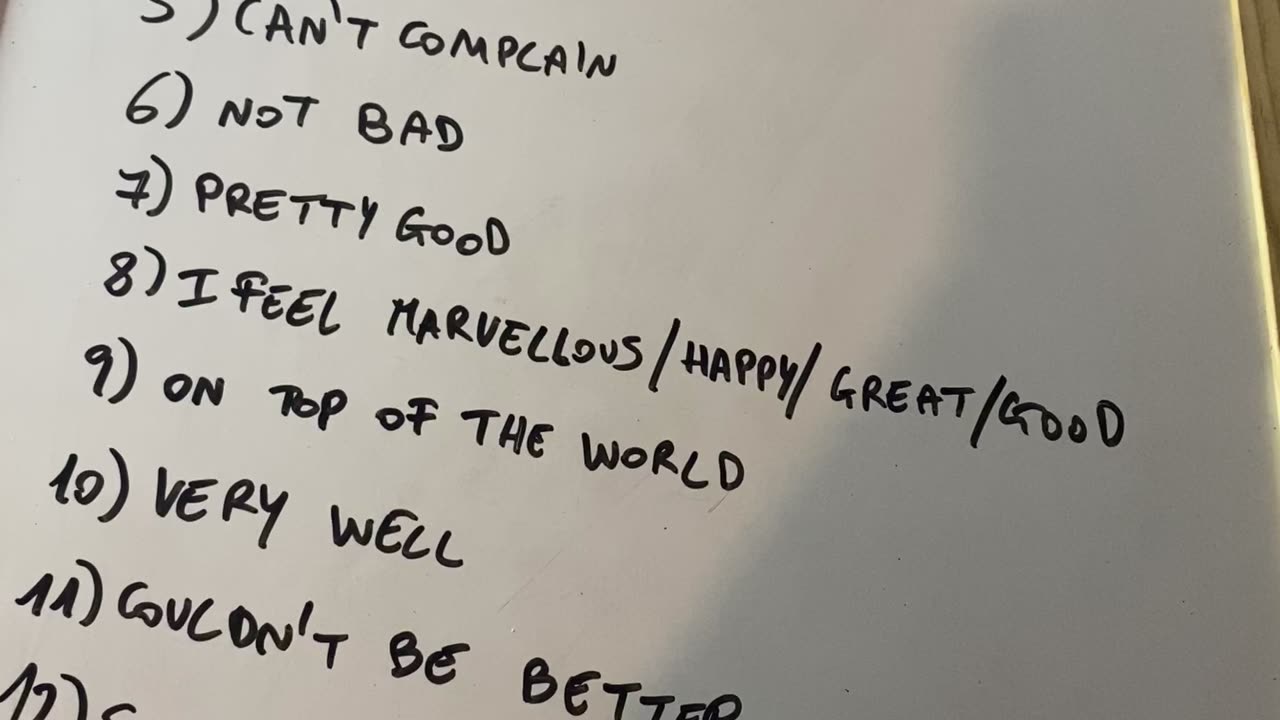 5) CAN'T COMPLAIN
6) NOT BAD
7) PRETTY GOOD
8) I FEEL MARVELLOUS/HAPPY/GREAT/GOOD
9) ON TOP OF THE WORLD
10) VERY WELL
11) COULDN'T BE BETTER
12)